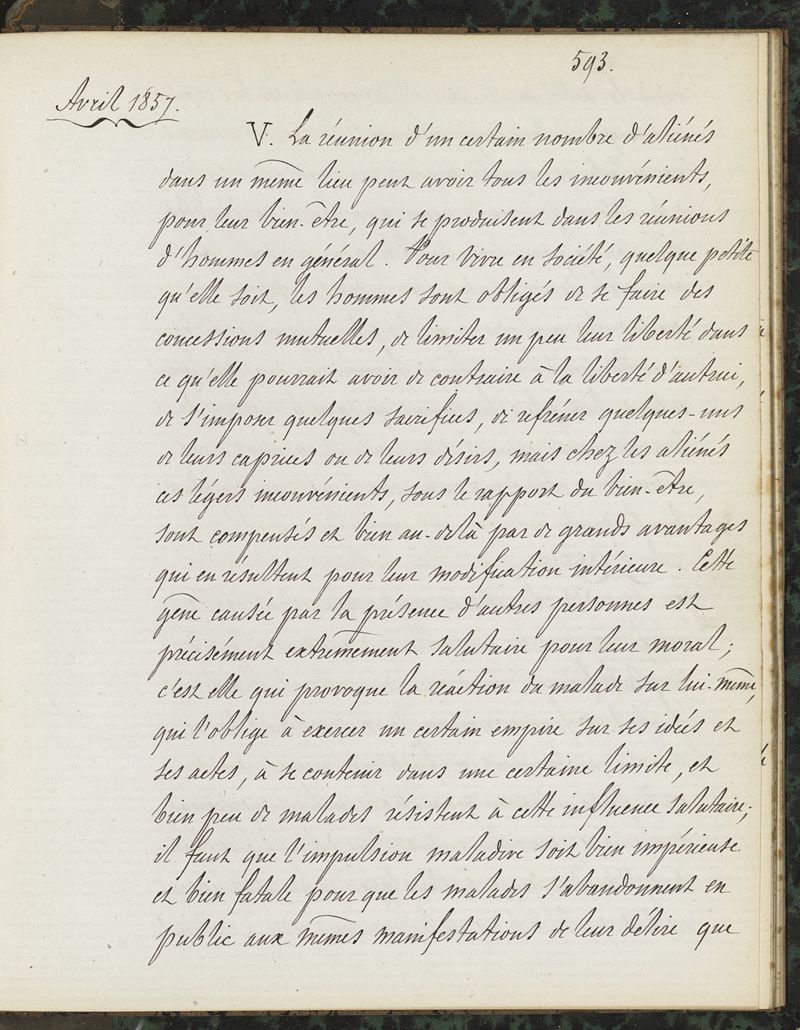 593.
Avril 1857.
V. La réunion d'un certain nombre d'aliénés
dans un même lieu peut avoir tous les inconvénients,
pour leur bien-être, qui se produisent dans les réunions
d'hommes en général. Pour vivre en société, quelque petite
qu'elle soit, les hommes sont obligés de se faire des
concessions mutuelles, de limiter un peu leur liberté dans
ce qu'elle pourrait avoir de contraire à la liberté d'autrui,
de s'imposer quelques sacrifices, de refréner quelques-uns
de leurs caprices ou de leurs désirs, mais chez les aliénés
ces légers inconvénients, sous le rapport du bien-être,
sont compensés et bien au-delà par de grands avantages
qui en résultent pour leur modification intérieure. Cette
gêne causée par la présence d'autres personnes est
précisément extrêmement salutaire pour leur moral;
c'est elle qui provoque la réaction du malade sur lui-même,
qui l'oblige à exercer un certain empire sur ses idées et
ses actes, à se contenir dans une certaine limite, et
bien peu de malades résistent à cette influence salutaire;
il faut que l'impulsion maladive soit bien impérieuse
et bien fatale pour que les malades s'abandonnent en
public aux mêmes manifestations de leur délire que